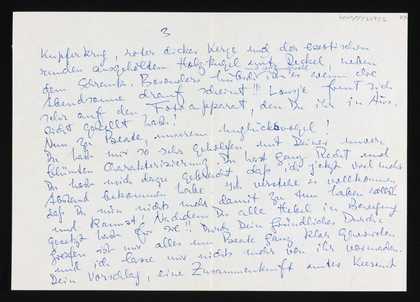 3
Kupferkrug, roter dicker Kerze und der exotischen
runden ausgehöhlten Holzkugel Deckel, neben
dem Schrank. Besonders ist es wenn die
Abendsonne drauf scheint!! Lange freut sich
sehr auf den Fotoapparat, den Du ihr in Aus-
sicht gestellt hast!
Nun zu Beate, unserem Unglücksvogel!
Du hast mir so sehr geholfen mit Deiner
Charakterisierung. Du hast ganz Recht und
Du hast mich dazu gebracht, daß ich jetzt viel mehr
Abstand bekommen habe. Ich verstehe es vollkommen
daß Du nun nichts mehr damit zu tun haben willst
und kannst! Nachdem Du alle Hebel in Bewegung
gesetzt hast für sie!! Durch Dein gründliches Durch-
ist mir alles um Beate ganz klar geworden
und ich lasse mir nichts mehr von ihr vormachen.
Dein Vorschlag, eine Zusammenkunft